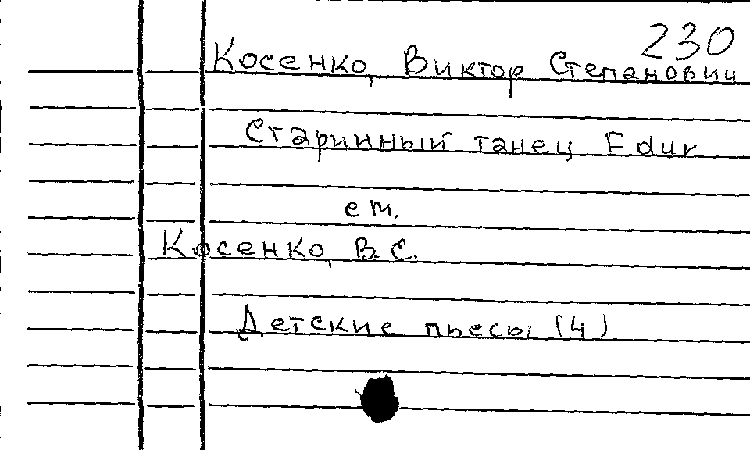 230
Косенко, Виктор Степанович
Старинный танец F dur
см.
Косенко, В.С.
Детские пьесы (4)